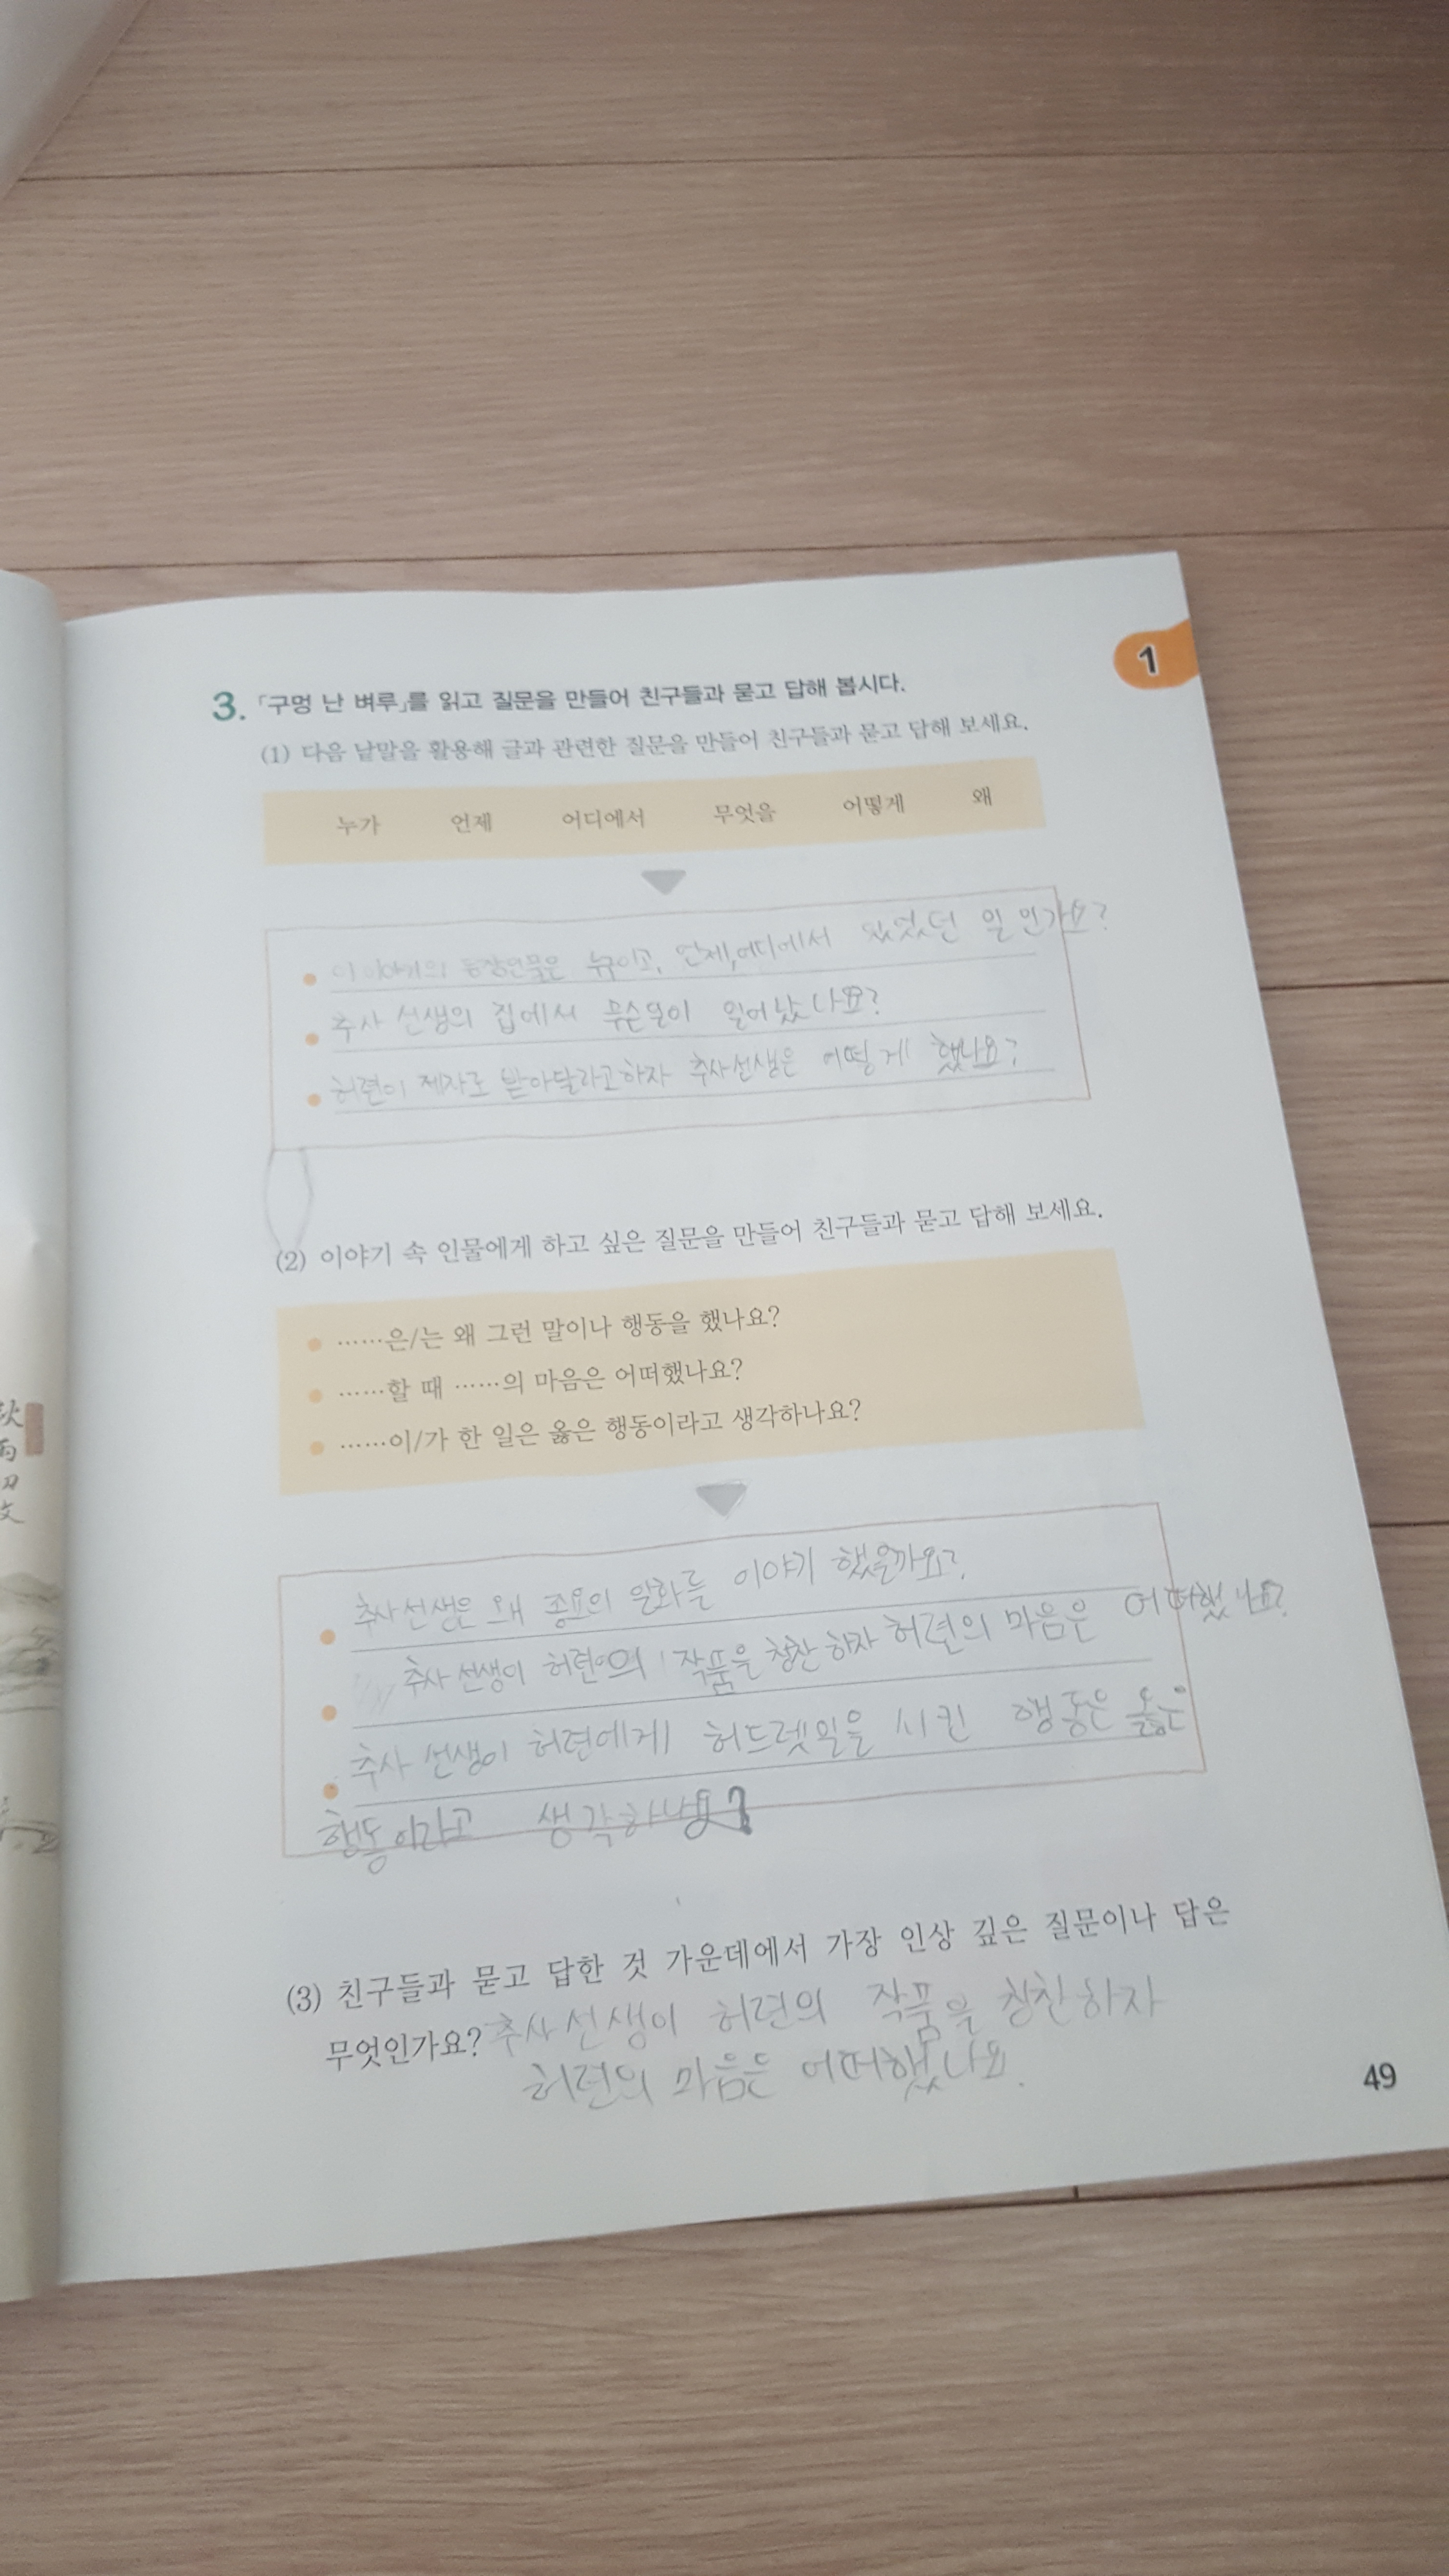 1
3. 「구멍 난 벼루」를 읽고 질문을 만들어 친구들과 묻고 답해 봅시다.
(1) 다음 낱말을 활용해 글과 관련한 질문을 만들어 친구들과 묻고 답해 보세요.
누가 언제 어디에서 무엇을 어떻게 왜
이 이야기의 등장인물은 누구이고, 언제,어디에서 있었던 일인가요?
추사 선생의 집에서 무슨일이 일어났나요?
허련이 제자로 받아달라고하자 추사선생은 어떻게 했나요?
(2) 이야기 속 인물에게 하고 싶은 질문을 만들어 친구들과 묻고 답해 보세요.
……은/는 왜 그런 말이나 행동을 했나요?
……할 때 ……의 마음은 어떠했나요?
……이/가 한 일은 옳은 행동이라고 생각하나요?
추사선생은 왜 종요의 일화를 이야기 했을까요?
추사선생이 허련의 작품을 칭찬하자 허련의 마음은 어떠했나요?
추사 선생이 허련에게 허드렛일을 시킨 행동은 옳은
행동이라고 생각하나요?
(3) 친구들과 묻고 답한 것 가운데에서 가장 인상 깊은 질문이나 답은
무엇인가요? 추사선생이 허련의 작품을 칭찬하자
허련의 마음은 어떠했나요.
49